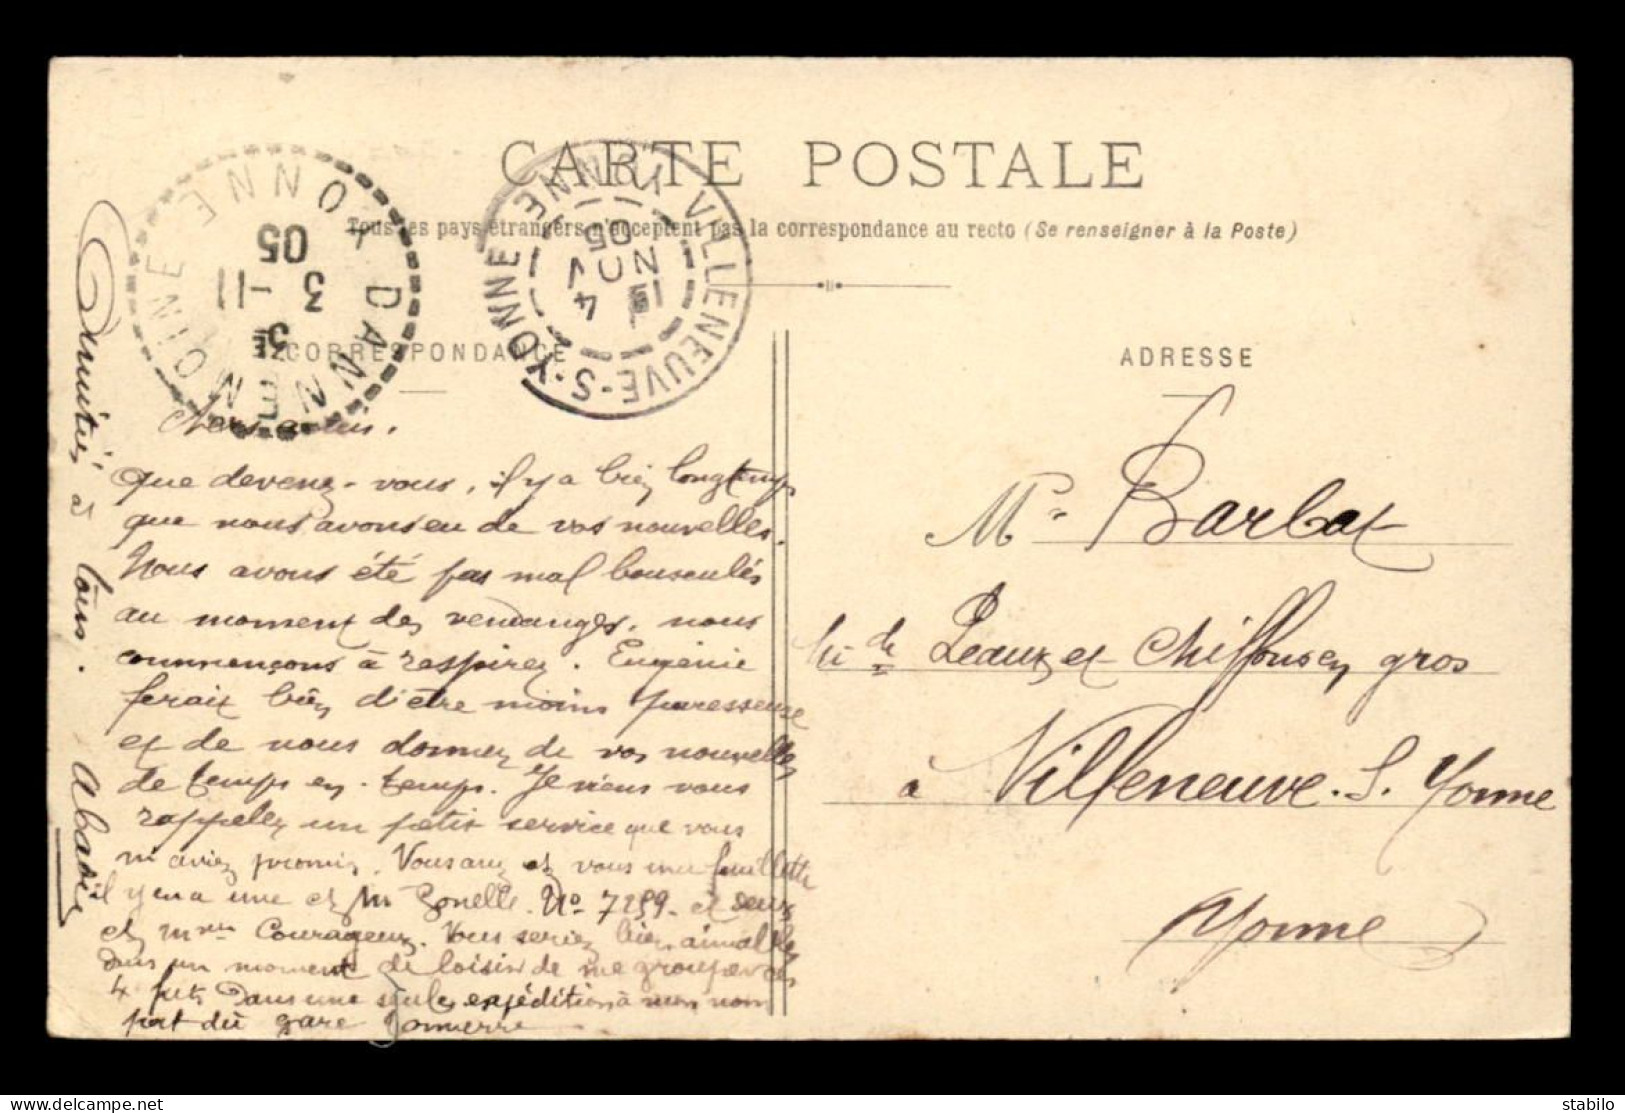 CARTE POSTALE
Tous les pays étrangers n'acceptent pas la correspondance au recto (Se renseigner à la Poste)
DANNEMOINE YONNE
3E
3 -11
05
VILLENEUVE-S-YONNE YONNE
1E
4 NOV
05
CORRESPONDANCE
ADRESSE
Chers amis.
Que devenez-vous, il y a bien longtemps
que nous avons eu de vos nouvelles.
Nous avons été pas mal bousculés
au moment des vendanges, nous
commençons à respirer. Eugénie
ferait bien d'être moins paresseuse
et de nous donner de vos nouvelles
de temps en temps. Je viens vous
rappeler un petit service que vous
m'aviez promis. Vous avez chez vous une feuillette
il y en a une chez M Gonelle. No 7159. et deux
chez Mme Courageux. Vous seriez bien aimables
dans un moment de loisir de me grouper ces
4 futs dans une seule expédition à mon nom
port dû gare Tonnerre
Amitiés à tous.
Mr Barbat
Md de Peaux et Chiffons en gros
à Villeneuve. S. Yonne
Yonne
stabilo